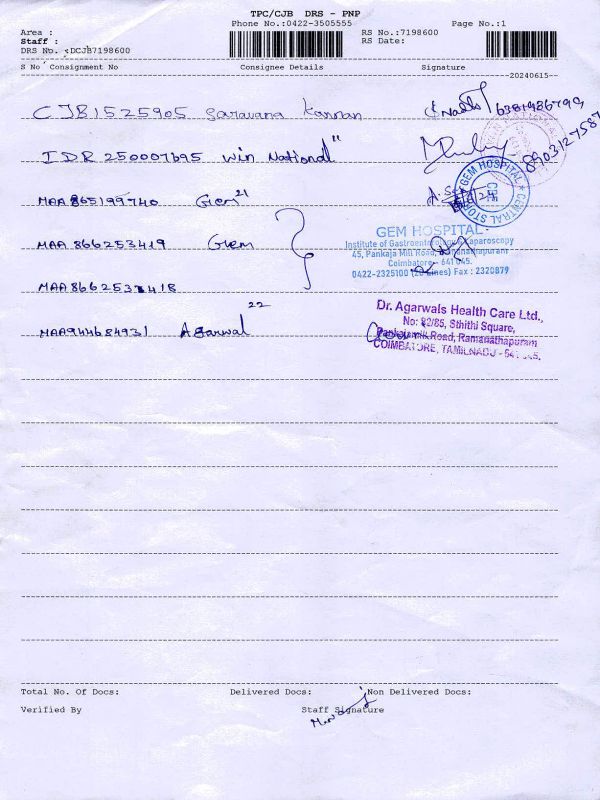 TPC/CJB DRS - PNP
Phone No.:0422-3505555
Page No.:1
Area :
Staff :
DRS No. :DCJB7198600
RS No.:7198600
RS Date:
S No Consignment No Consignee Details Signature
20240615
CJB1525905 Saravana Kannan 6381986799
IDR 250007695 Win National" 8903127587
MAA 865199740 Gem 21
GEM HOSPITAL
CENTRAL STORE
GEM HOSPITAL
Institute of Gastroenterology & Laparoscopy
45, Pankaja Mill Road, Ramanathapuram
Coimbatore - 641 045.
0422-2325100 (20 Lines) Fax : 2320879
MAA 866253419 Gem
MAA 866253418
MAA944684931 Agarwal 22
Dr. Agarwals Health Care Ltd.,
No: 82/85, Sthithi Square,
Pankajamilk Road, Ramanathapuram
COIMBATORE, TAMILNADU - 641 045.
Total No. Of Docs: Delivered Docs: Non Delivered Docs:
Verified By Staff Signature